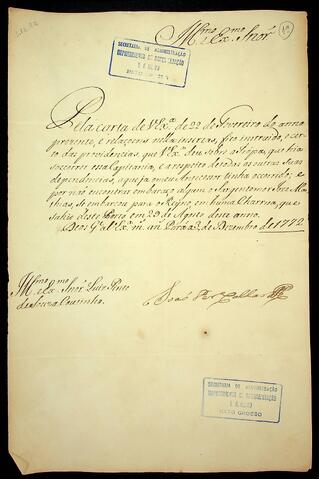 Illmo. e Exmo. Snor.
SECRETARIA DE ADMINISTRAÇÃO
DEPARTAMENTO DE DOCUMENTAÇÃO
MATO GROSSO
Pela carta de V. Exa. de 22 de Fevereiro do anno
prezente, e relaçoens nella incluzas, fico instruido, e certo
das providencias, que V. Exa. deu sobre a Tropa, que hia
socorrer essa Capitania, e a respeito de todas as outras suas
dependencias, a que ja meu Antecessor tinha ocorrido; e
por não encontrar embaraço algum o Sargento mór
se embarcou para o Reyno, em huma Charrua, que
sahio deste Porto em 29 de Agosto deste anno.
Deos Gde. a V. Exa. m. an. Pará a 3 de Dezembro de 1772
Illmo. e Exmo. Snor. Luiz Pinto
de Souza Coutinho.
João Per. Caldas
SECRETARIA DE ADMINISTRAÇÃO
DEPARTAMENTO DE DOCUMENTAÇÃO
MATO GROSSO